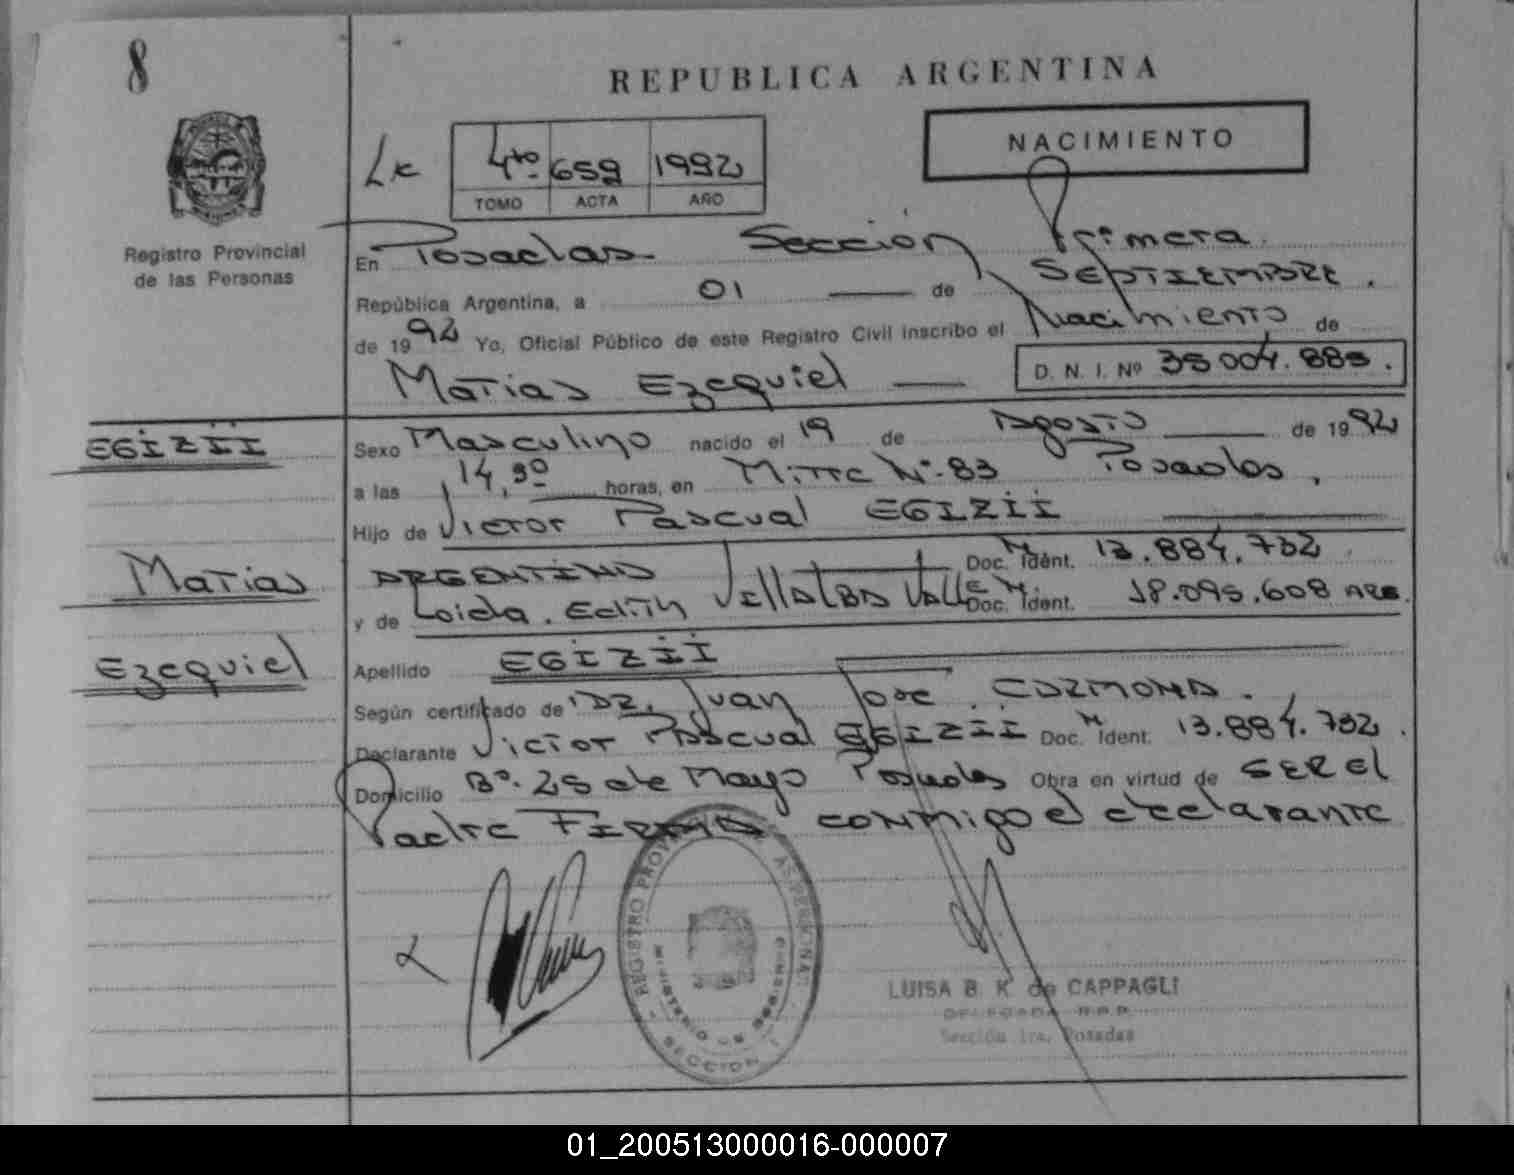 8
REPUBLICA ARGENTINA
NACIMIENTO
4to 659 1992
TOMO ACTA AÑO
Registro Provincial
de las Personas
En Posadas Sección Primera
República Argentina, a 01 de SEPTIEMBRE.
de 1992 Yo, Oficial Público de este Registro Civil inscribo el Nacimiento de
Matias Ezequiel D. N. I. Nº
EGIZII
Sexo Masculino nacido el 19 de Agosto de 1992
a las 14,30 horas, en Mitre Nº 83 Posadas,
Hijo de Victor Pascual EGIZII
Matias
ARGENTINO Doc. M. Ident. 13.884.732
y de Loida. Edith Villalba Valle Doc. M. Ident. 18.095.608 ARG.
Ezequiel
Apellido EGIZII
Según certificado de DR. Juan Jose
Declarante Victor Pascual EGIZII Doc. M. Ident. 13.884.732.
Domicilio Bº. 25 de Mayo Posadas Obra en virtud de SER El
Padre FIRMA conmigo el declarante
REGISTRO PROVINCIAL DE LAS PERSONAS
MINISTERIO DE GOBIERNO
SECCION 1
LUISA B. K. de CAPPAGLI
DELEGADA R.P.P.
Sección 1ra. Posadas
01_200513000016-000007